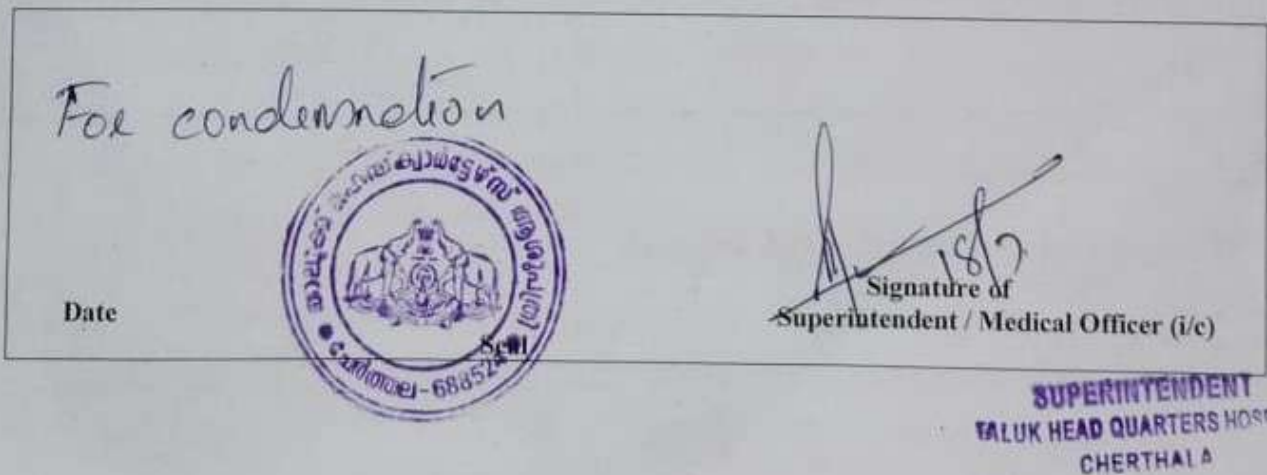 For condemnation
താലൂക്ക് ഹെഡ് ക്വാർട്ടേഴ്സ് ആശുപത്രി
ചേർത്തല - 688524
Date
Seal
18/7
Signature of
Superintendent / Medical Officer (i/c)
SUPERINTENDENT
TALUK HEAD QUARTERS HOSP
CHERTHALA